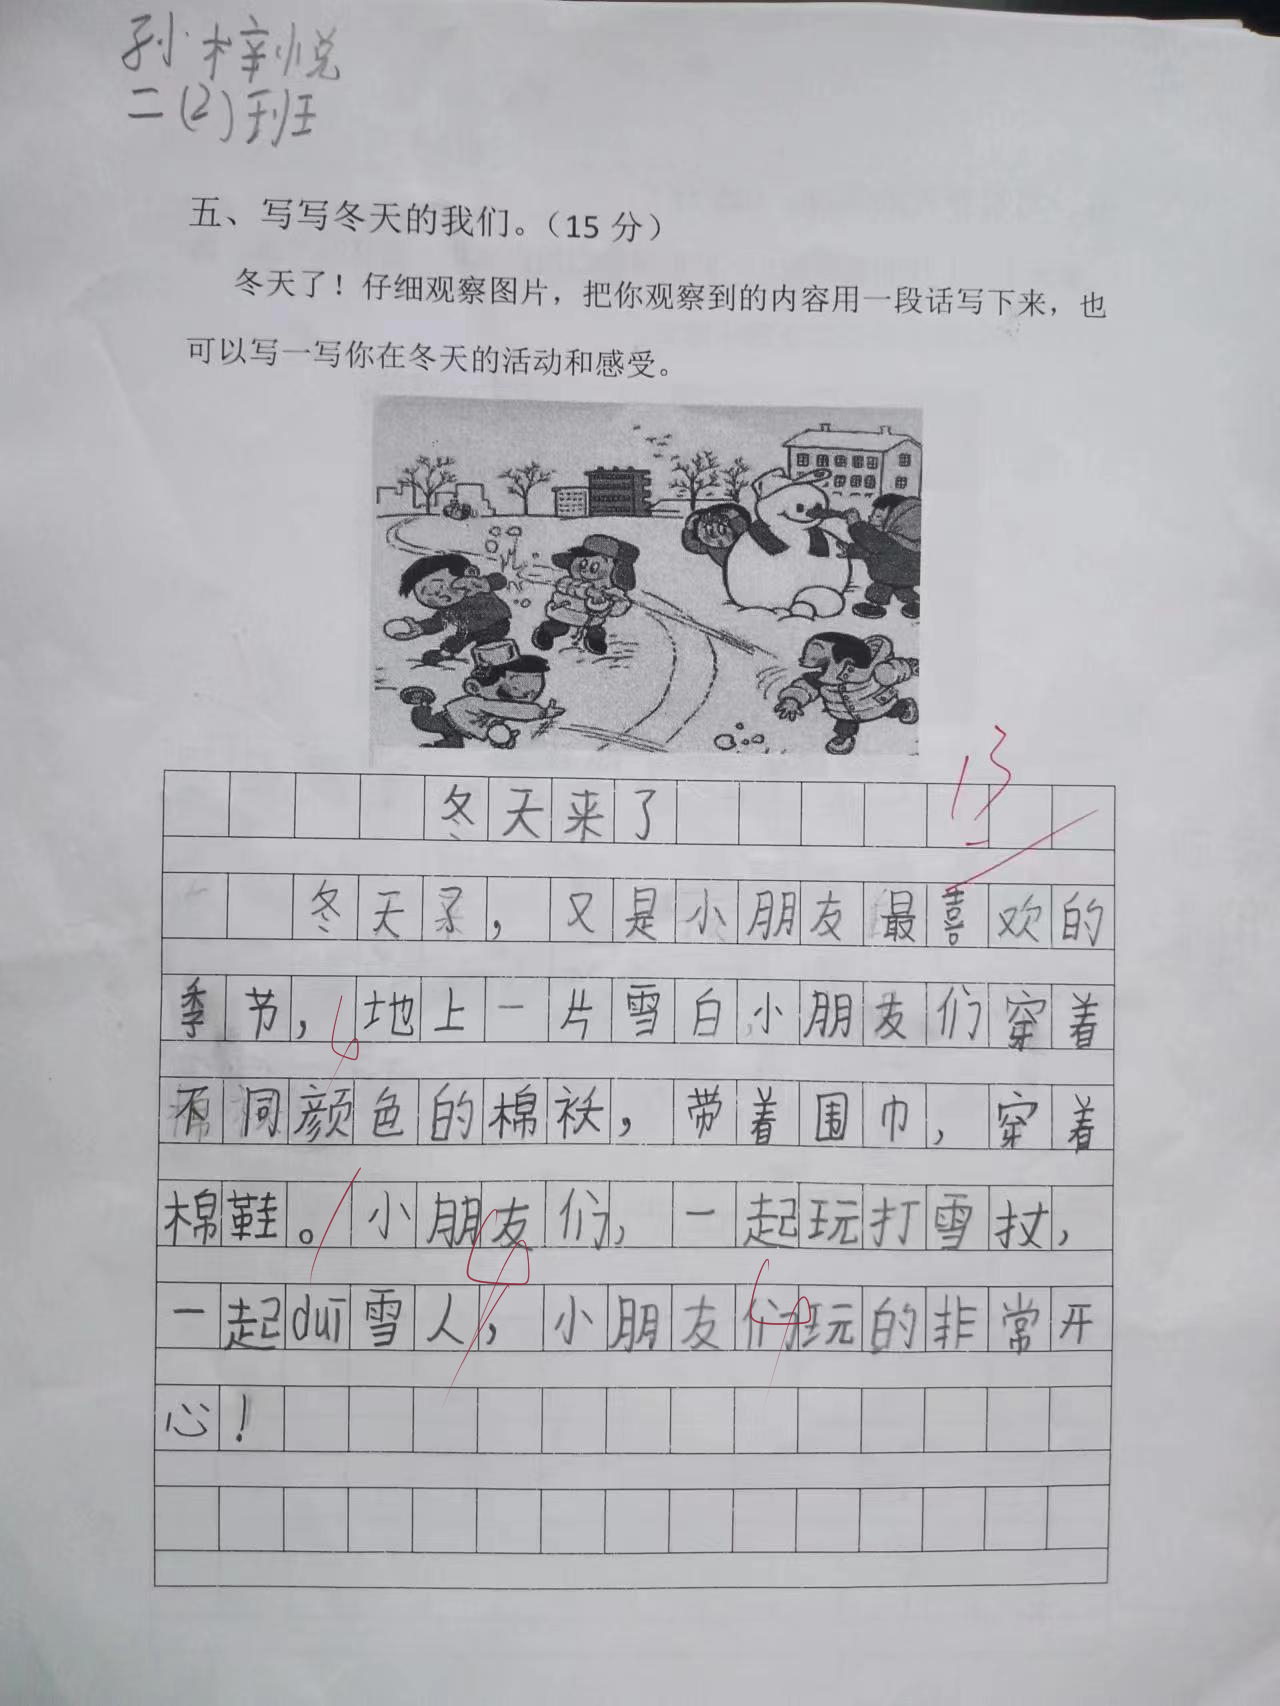 孙梓悦
二(2)班
五、写写冬天的我们。（15分）
冬天了！仔细观察图片，把你观察到的内容用一段话写下来，也
可以写一写你在冬天的活动和感受。
13
冬天来了
冬天了，又是小朋友最喜欢的
季节，地上一片雪白，小朋友们穿着
不同颜色的棉袄，带着围巾，穿着
棉鞋。小朋友们，一起玩打雪扙，
一起duī雪人，小朋友们玩的非常开
心！